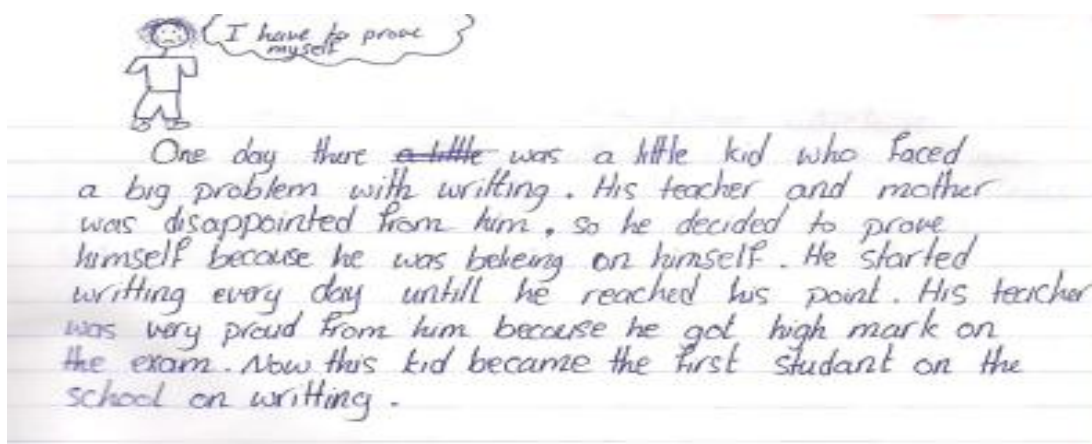 I have to prove
myself
One day there a little was a little kid who faced
a big problem with writting. His teacher and mother
was disappointed from him, so he decided to prove
himself because he was beleing on himself. He started
writting every day untill he reached his point. His teacher
was very proud from him because he got high mark on
the exam. Now this kid became the first studant on the
school on writting.